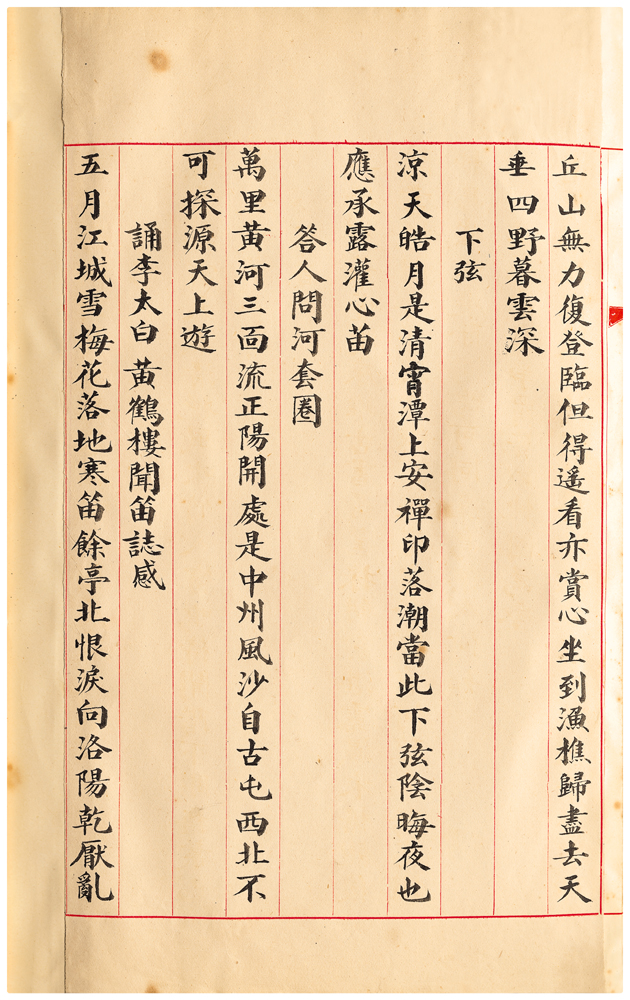 丘山無力復登臨但得遥看亦賞心坐到漁樵歸盡去天
垂四野暮雲深
下弦
涼天皓月是清宵潭上安禪印落潮當此下弦陰晦夜也
應承露灌心苗
答人問河套圈
萬里黃河三面流正陽開處是中州風沙自古屯西北不
可探源天上遊
誦李太白黃鶴樓聞笛誌感
五月江城雪梅花落地寒笛餘亭北恨淚向洛陽乾厭亂